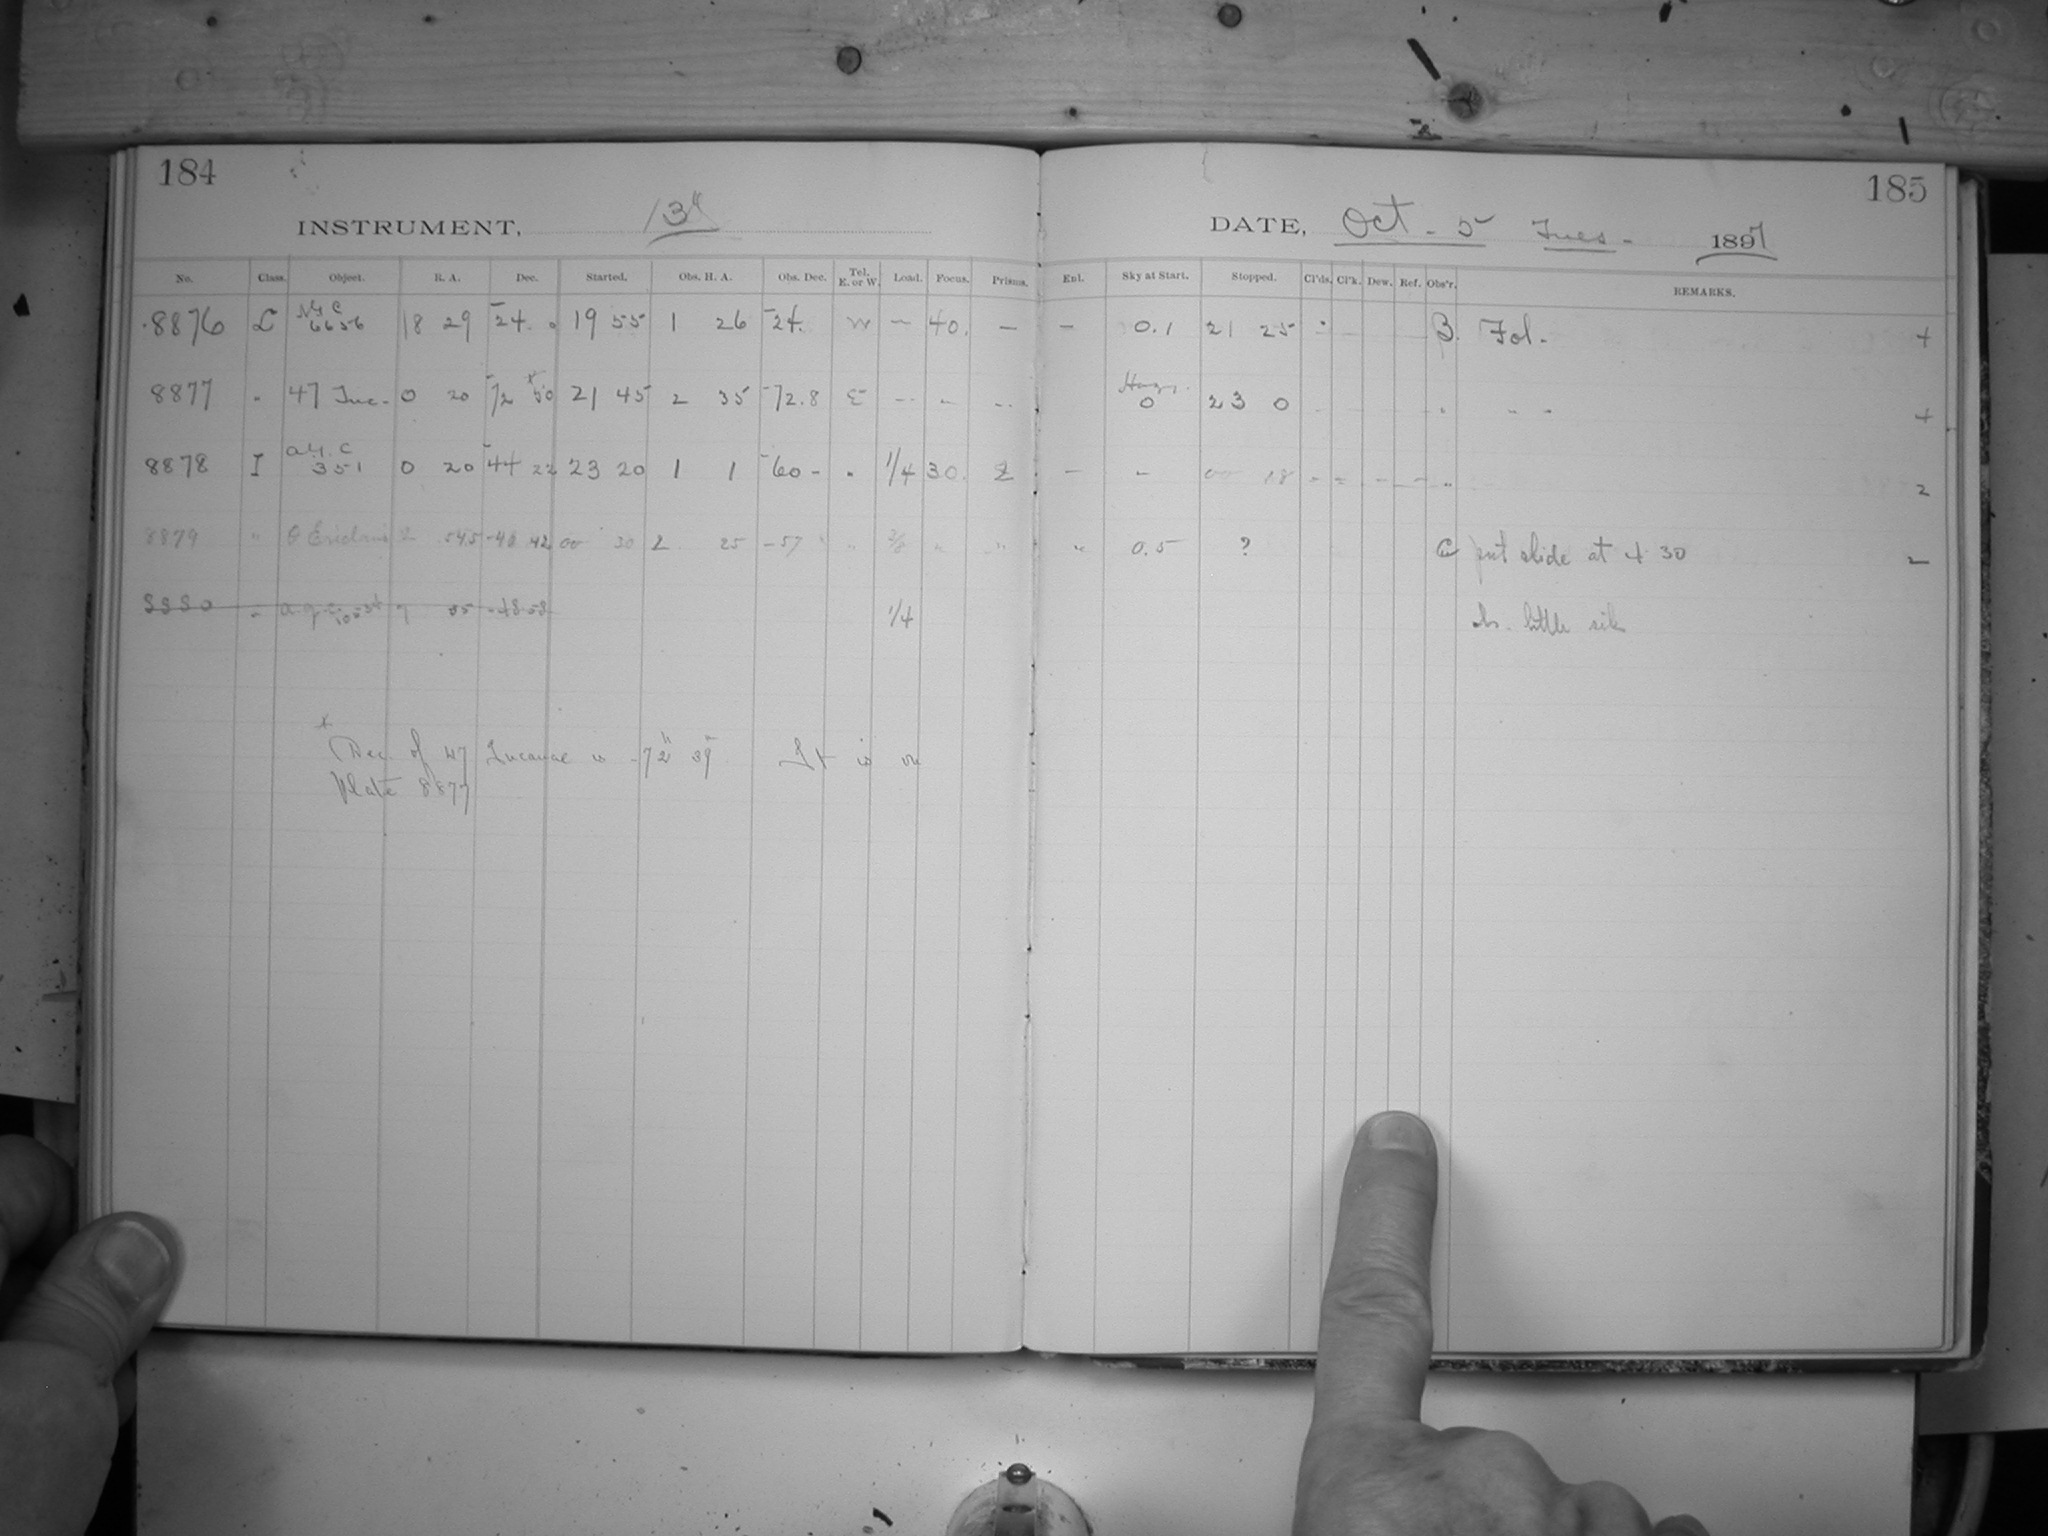 184
INSTRUMENT, 13"
No. Class. Object. R. A. Dec. Started. Obs. H. A. Obs. Dec. Tel. E. or W. Load. Focus. Prisms.
8876 L N.G.C 6656 18 29 -24. 0 19 55 1 26 -24. W - 40. -
8877 " 47 Tuc. 0 20 -72 *50 21 45 2 35 -72.8 E - - -
8878 I a.g.c 351 0 20 -44 22 23 20 1 1 -60 - " 1/4 30. 2
8879 " θ Eridani 2 54.5 -40 42 00 30 2 25 -57 " " "
8880 " a.g.c. 7 35 -48.58 1/4
* Dec. of 47 Tucanae is -72° 39' It is on
Plate 8877
185
DATE, Oct - 5 Tues - 1897
Enl. Sky at Start. Stopped. Cl'ds. Cl'k. Dew. Ref. Obs'r. REMARKS.
- 0.1 21 25 B. Fol. +
Hazy. 0 23 0 " " " +
- - 00 18 - - - - " 2
" 0.5 ? C put slide at 4 30 2
little